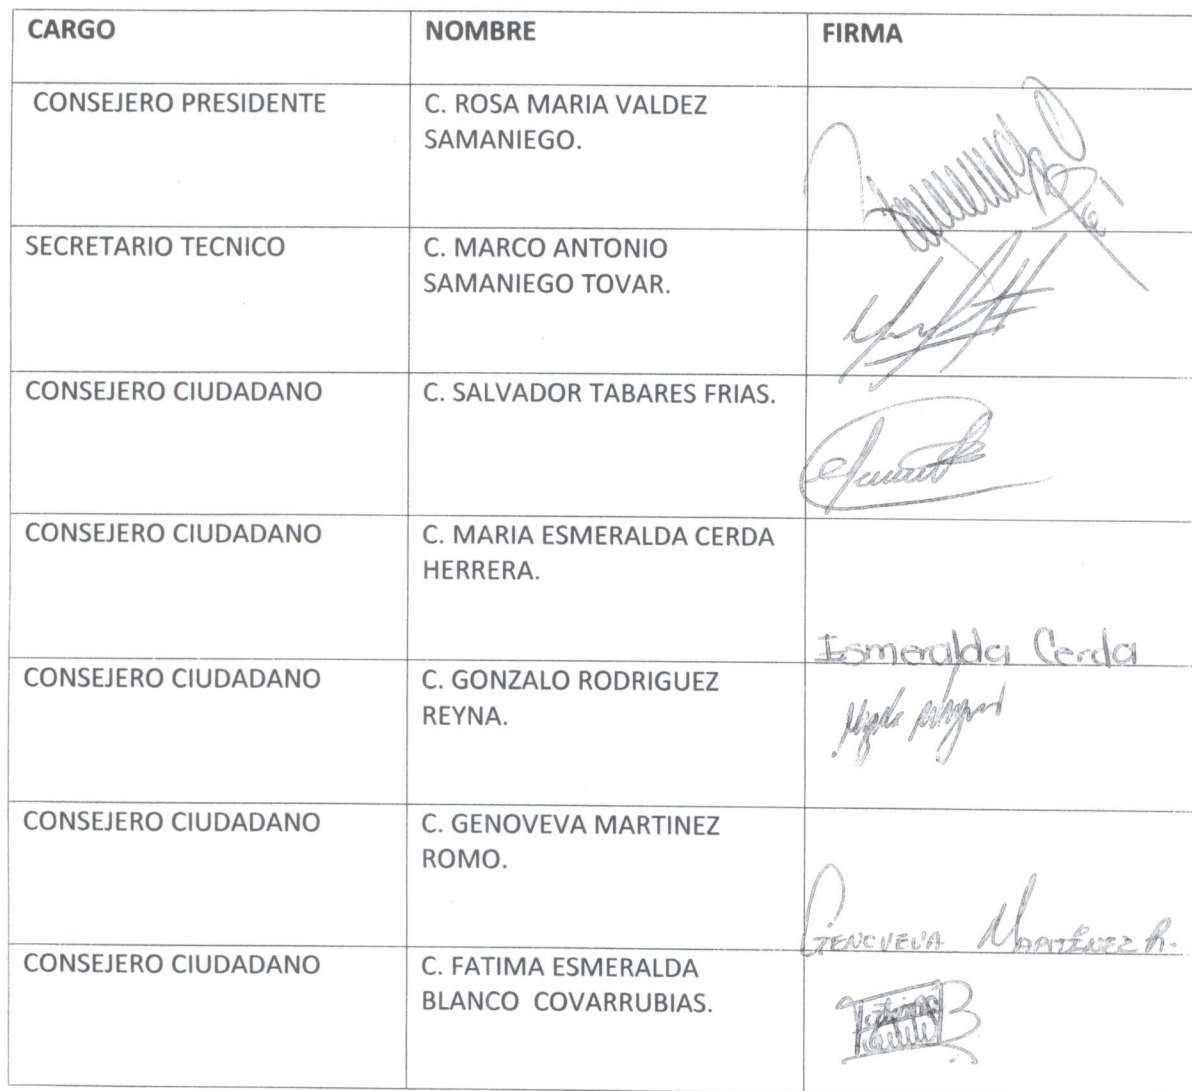 CARGO NOMBRE FIRMA
CONSEJERO PRESIDENTE C. ROSA MARIA VALDEZ
SAMANIEGO.
SECRETARIO TECNICO C. MARCO ANTONIO
SAMANIEGO TOVAR.
CONSEJERO CIUDADANO C. SALVADOR TABARES FRIAS.
CONSEJERO CIUDADANO C. MARIA ESMERALDA CERDA
HERRERA.
Esmeralda Cerda
CONSEJERO CIUDADANO C. GONZALO RODRIGUEZ
REYNA.
CONSEJERO CIUDADANO C. GENOVEVA MARTINEZ
ROMO.
GENOVEVA MARTÍNEZ R.
CONSEJERO CIUDADANO C. FATIMA ESMERALDA
BLANCO COVARRUBIAS.